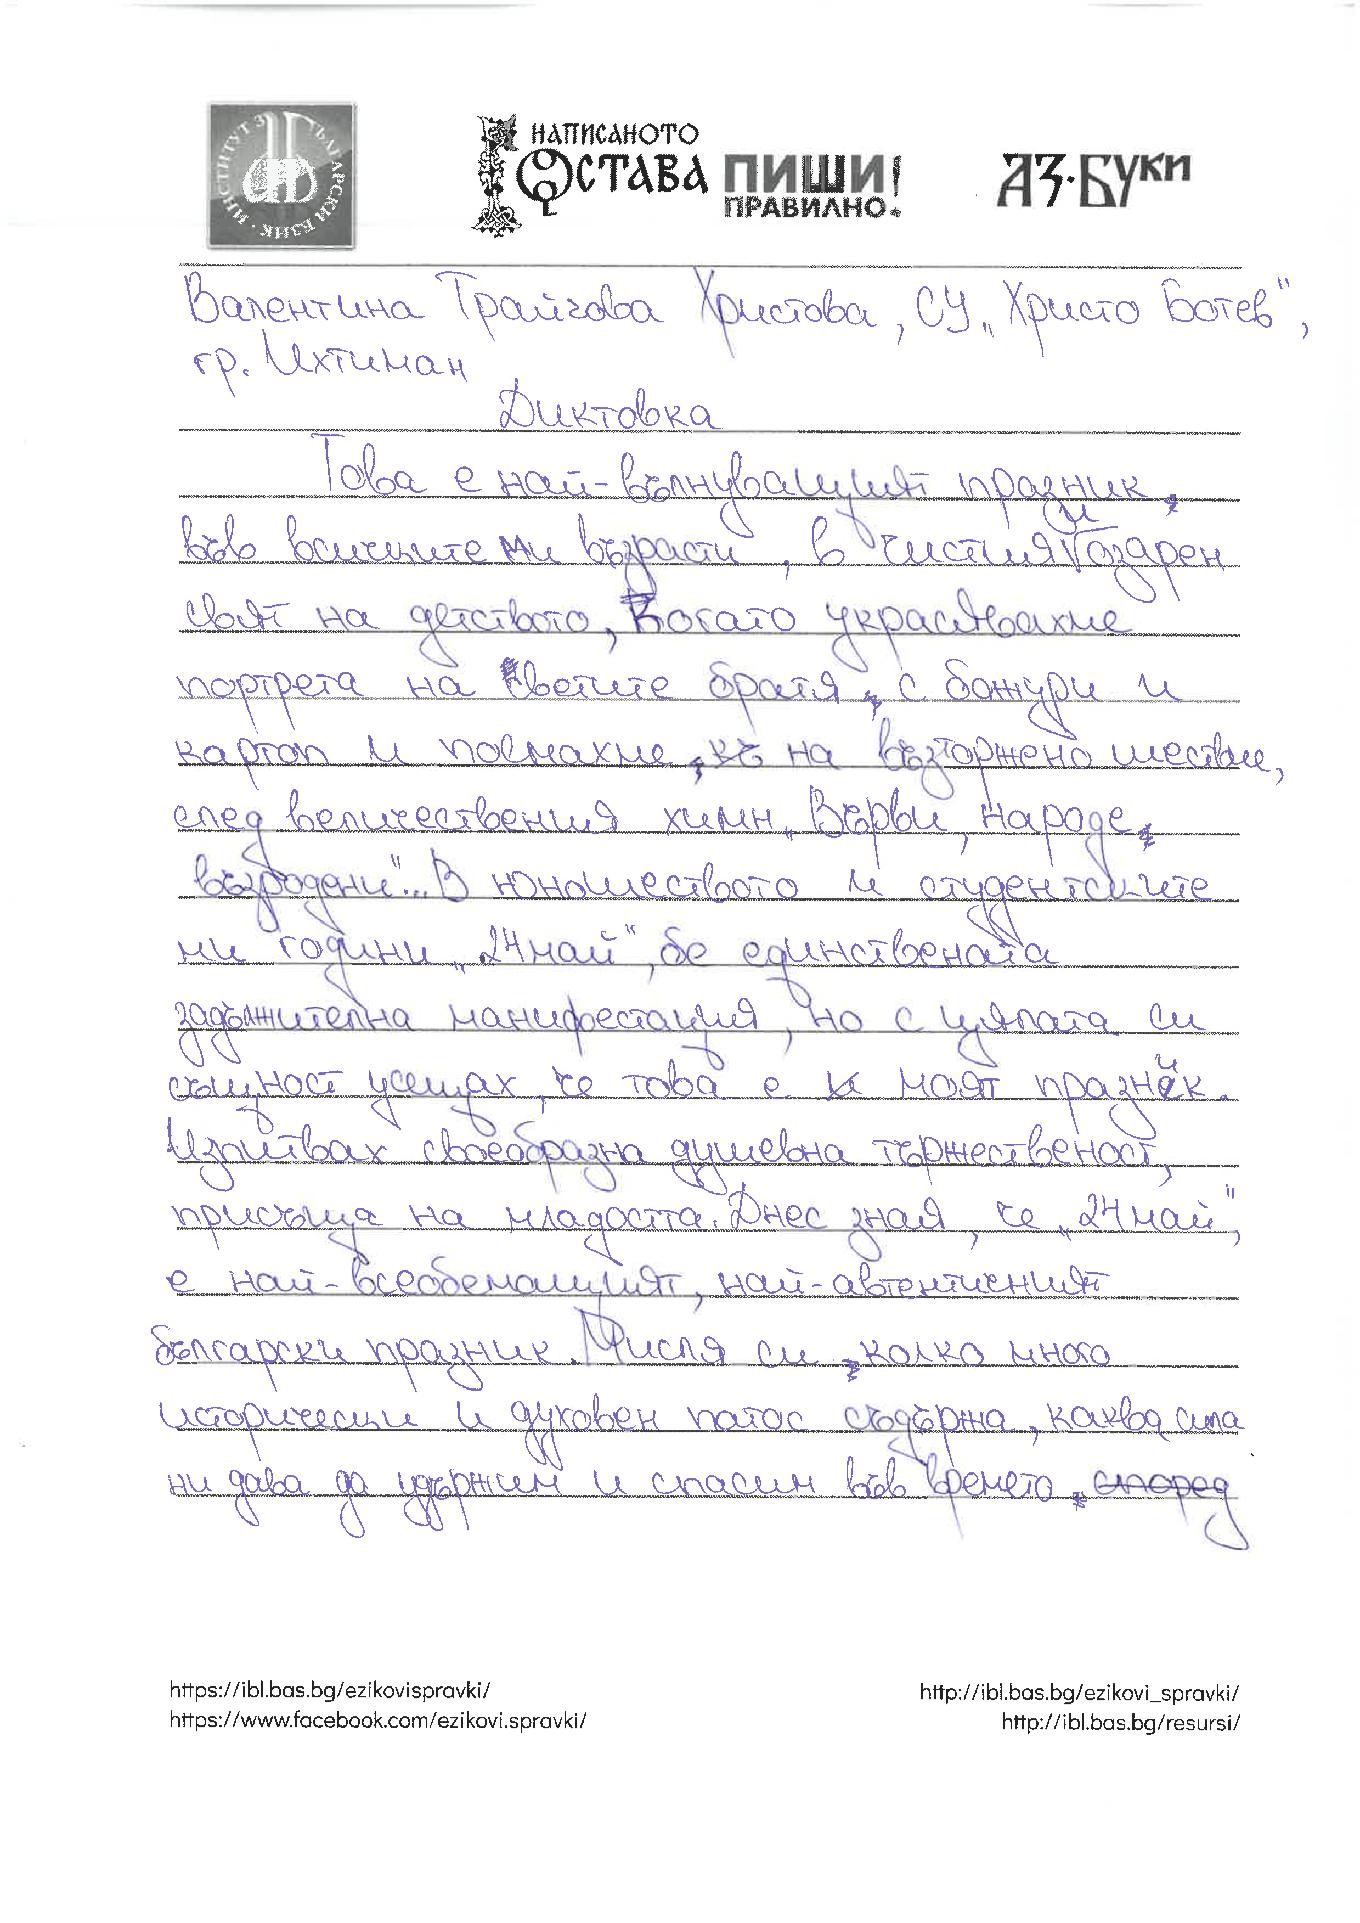 ИНСТИТУТ ЗА БЪЛГАРСКИ ЕЗИК
НАПИСАНОТО
ОСТАВА ПИШИ!
ПРАВИЛНО.
АЗ·БУКИ
Валентина Трайчова Христова, СУ „Христо Ботев",
гр. Ихтиман
Диктовка
Това е най-вълнуващият празник
във всичките ми възрасти, в чистия и озарен
свят на детството, когато украсявахме
портрета на светите братя, с божури и
картоп и поемахме, на възторжено шествие,
след величествения химн „Върви, народе
възродени"... В юношеството и студентските
ми години „24 май", бе единствената
задължителна манифестация, но с цялата си
същност усещах, че това е и моят празник.
Изпитвах своеобразна душевна тържественост,
присъща на младостта. Днес зная, че „24 май",
е най-всеобемащият, най-автентисният
български празник. Мисля си колко много
исторически и духовен патос съдържа, каква сила
ни дава да удържим и спасим във времето според
https://ibl.bas.bg/ezikovispravki/ http://ibl.bas.bg/ezikovi_spravki/
https://www.facebook.com/ezikovi.spravki/ http://ibl.bas.bg/resursi/